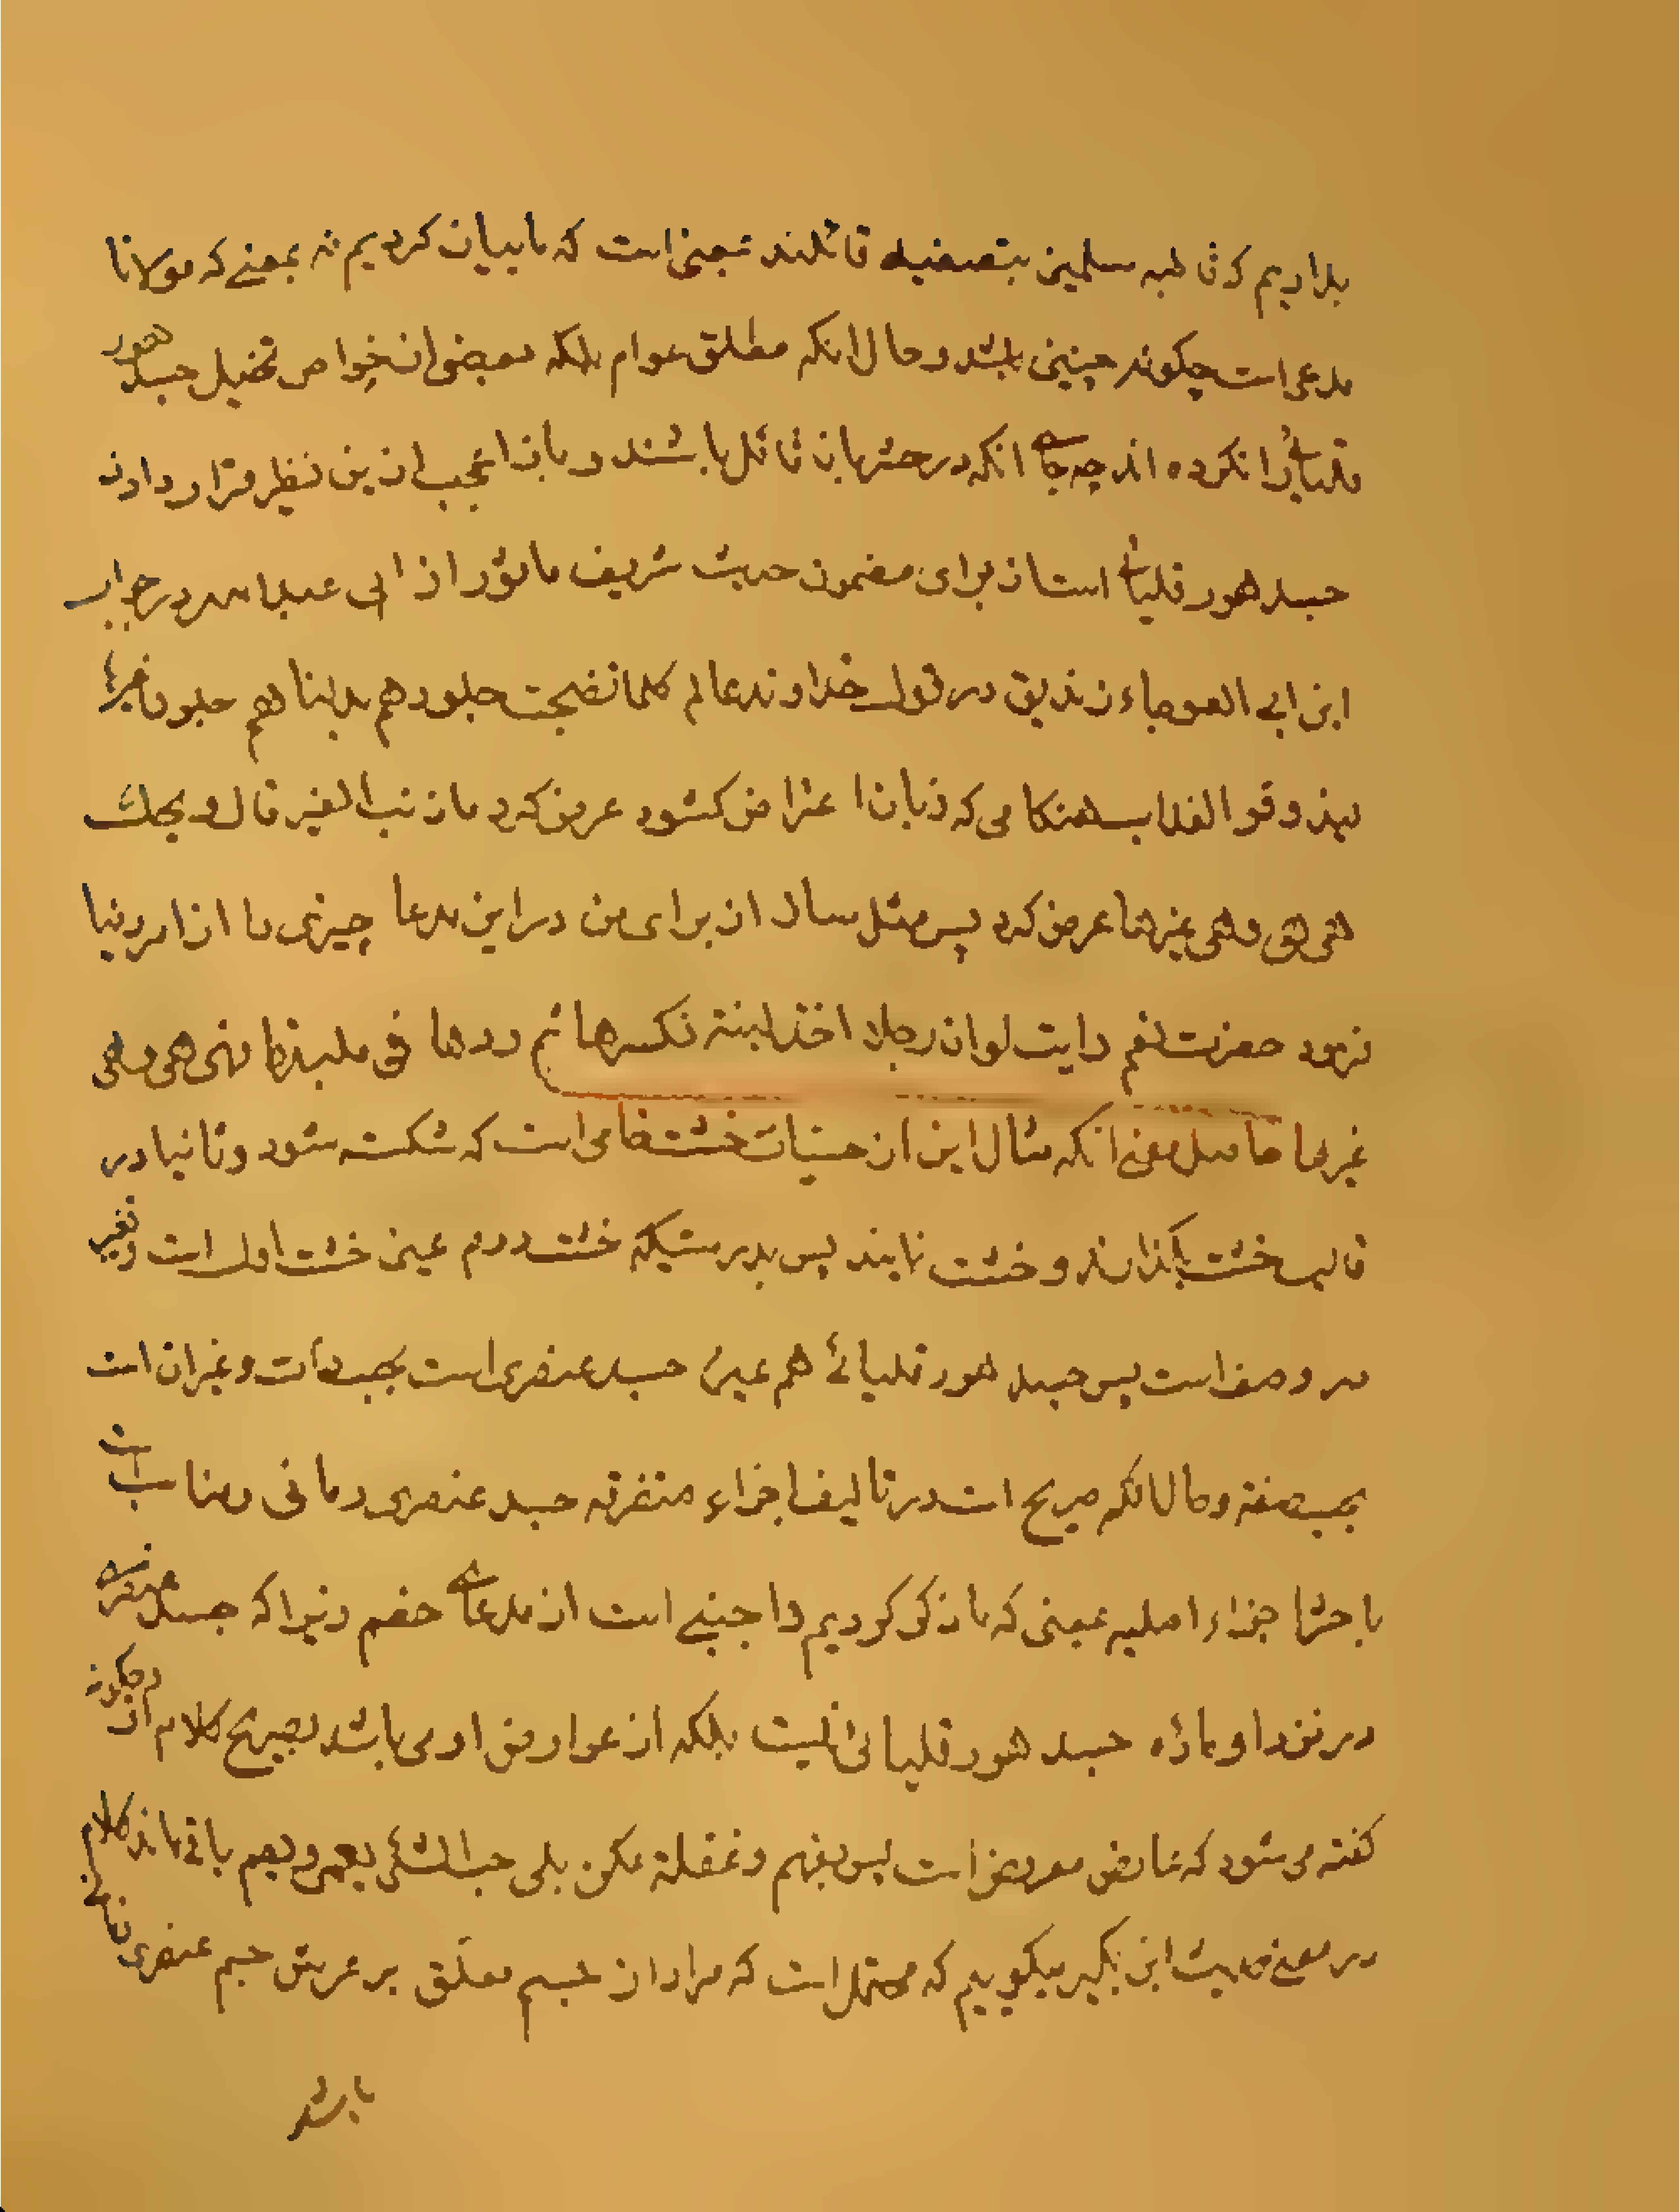 بداریم که قاطبه مسلمین بتصفیه قائلند بمعنی است که ما بیان کردیم نه بمعنے که مولانا
مدعی است چکونه چنینی باشد و حال انکه مطلق عوام بلکه بعضی از خواص تخیل جسد هور
قلیائی را نکرده اند چه جای انکه در حشر بان قائل باشند و باز اعجب از ین نظیر قرار دادن
جسد هور قلیائی است از برای مضمون حدیث شریف ماثور از ابی عبدالله در جواب
ابن ابی العوجاء زندیق در قول خداوند عالم کلما نضجت جلودهم بدلناهم جلودا غیرها
لیذوقوا العذاب هنکامی که زبان اعتراض کشود عرض کرد ما ذنب الغیر قال ویحک
هی هی وهی غیرها عرض کرد پس مثل سال از برای من در این مدعا چیزی را از امر دنیا
فرمود حضرت نعم رایت لو ان رجلا اخذ لبنة فکسرها ثم ردها فی ملبنها فهی هی وهی
غیرها حاصل معنی انکه مثال این از حسیات خشت خامی است که شکسته شود و ثانیا در
قالب خشت بکذارند و خشت نمایند پس بدرستیکه خشت دوم عین خشت اول است و تغیر
در وصف است پس جسد هور قلیائے هم عین جسد عنصری است بحسب ذات و غیر ان است
بحسب صفة و حال انکه صریح است در تالیف اجزاء متفرقه جسد عنصری رمانی و مناسب است
با حشر اجزاء اصلیه بمعنی که ما ذکر کردیم و اجنبے است از مدعای خصم زیرا که جسد عنصری
در نزد او ماده جسد هور قلیائی نیست بلکه از عوارض او می باشد بصریح کلام او و چکونه
کفته می شود که عارض معروض است پس بفهم و غفلة مکن بلی حب الشئ یعمی و یصم باقی ماند کلام
در معنے حدیث ابن بکیر میکوییم که محتمل است که مراد از جسم معلق بر عرش جسم عنصری
باشد